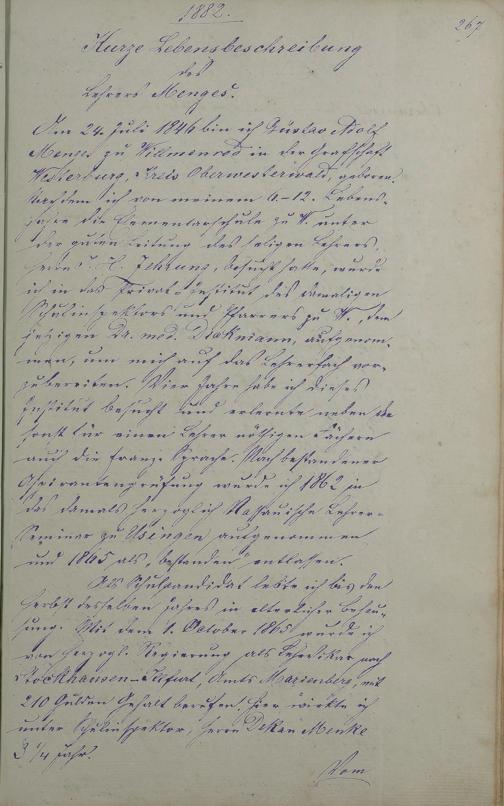 1882.
267
Kurze Lebensbeschreibung
des
Lehrers Menges.
Am 24. Juli 1846 bin ich Gustav Adolf
Menges zu Willmenrod in der Grafschaft
Westerburg, Kreis Oberwesterwald, geboren.
Nachdem ich von meinem 6.-12. Lebens-
jahre die Elementarschule zu W. unter
der guten Leitung des seligen Lehrers,
Herrn Jehrung, besucht hatte, wurde
ich in das Privat-Institut des damaligen
Schulinspektors und Pfarrers zu W., dem
jetzigen Dr. med. Dickmann, aufgenom-
men, um mich auf das Lehrerfach vor-
zubereiten. Vier Jahre habe ich dieses
Institut besucht und erlernte neben den
sonst für einen Lehrer nöthigen Fächern
auch die franz. Sprache. Nach bestandener
Aspirantenprüfung wurde ich 1862 in
das damals herzoglich Nassauische Lehrer-
Seminar zu Usingen aufgenommen
und 1865 als „bestanden" entlassen.
Als Schulcandidat lebte ich bis den
Herbst desselben Jahres in elterlicher Behau-
sung. Mit dem 1. October 1865 wurde ich
von herzogl. Regierung als Lehrvikar nach
Stockhausen-Illfurt, Amts Marienberg, mit
210 Gulden Gehalt berufen. Hier wirkte ich
unter Schulinspektor, Herrn Dekan Menke
3 1/4 Jahr.
Vom